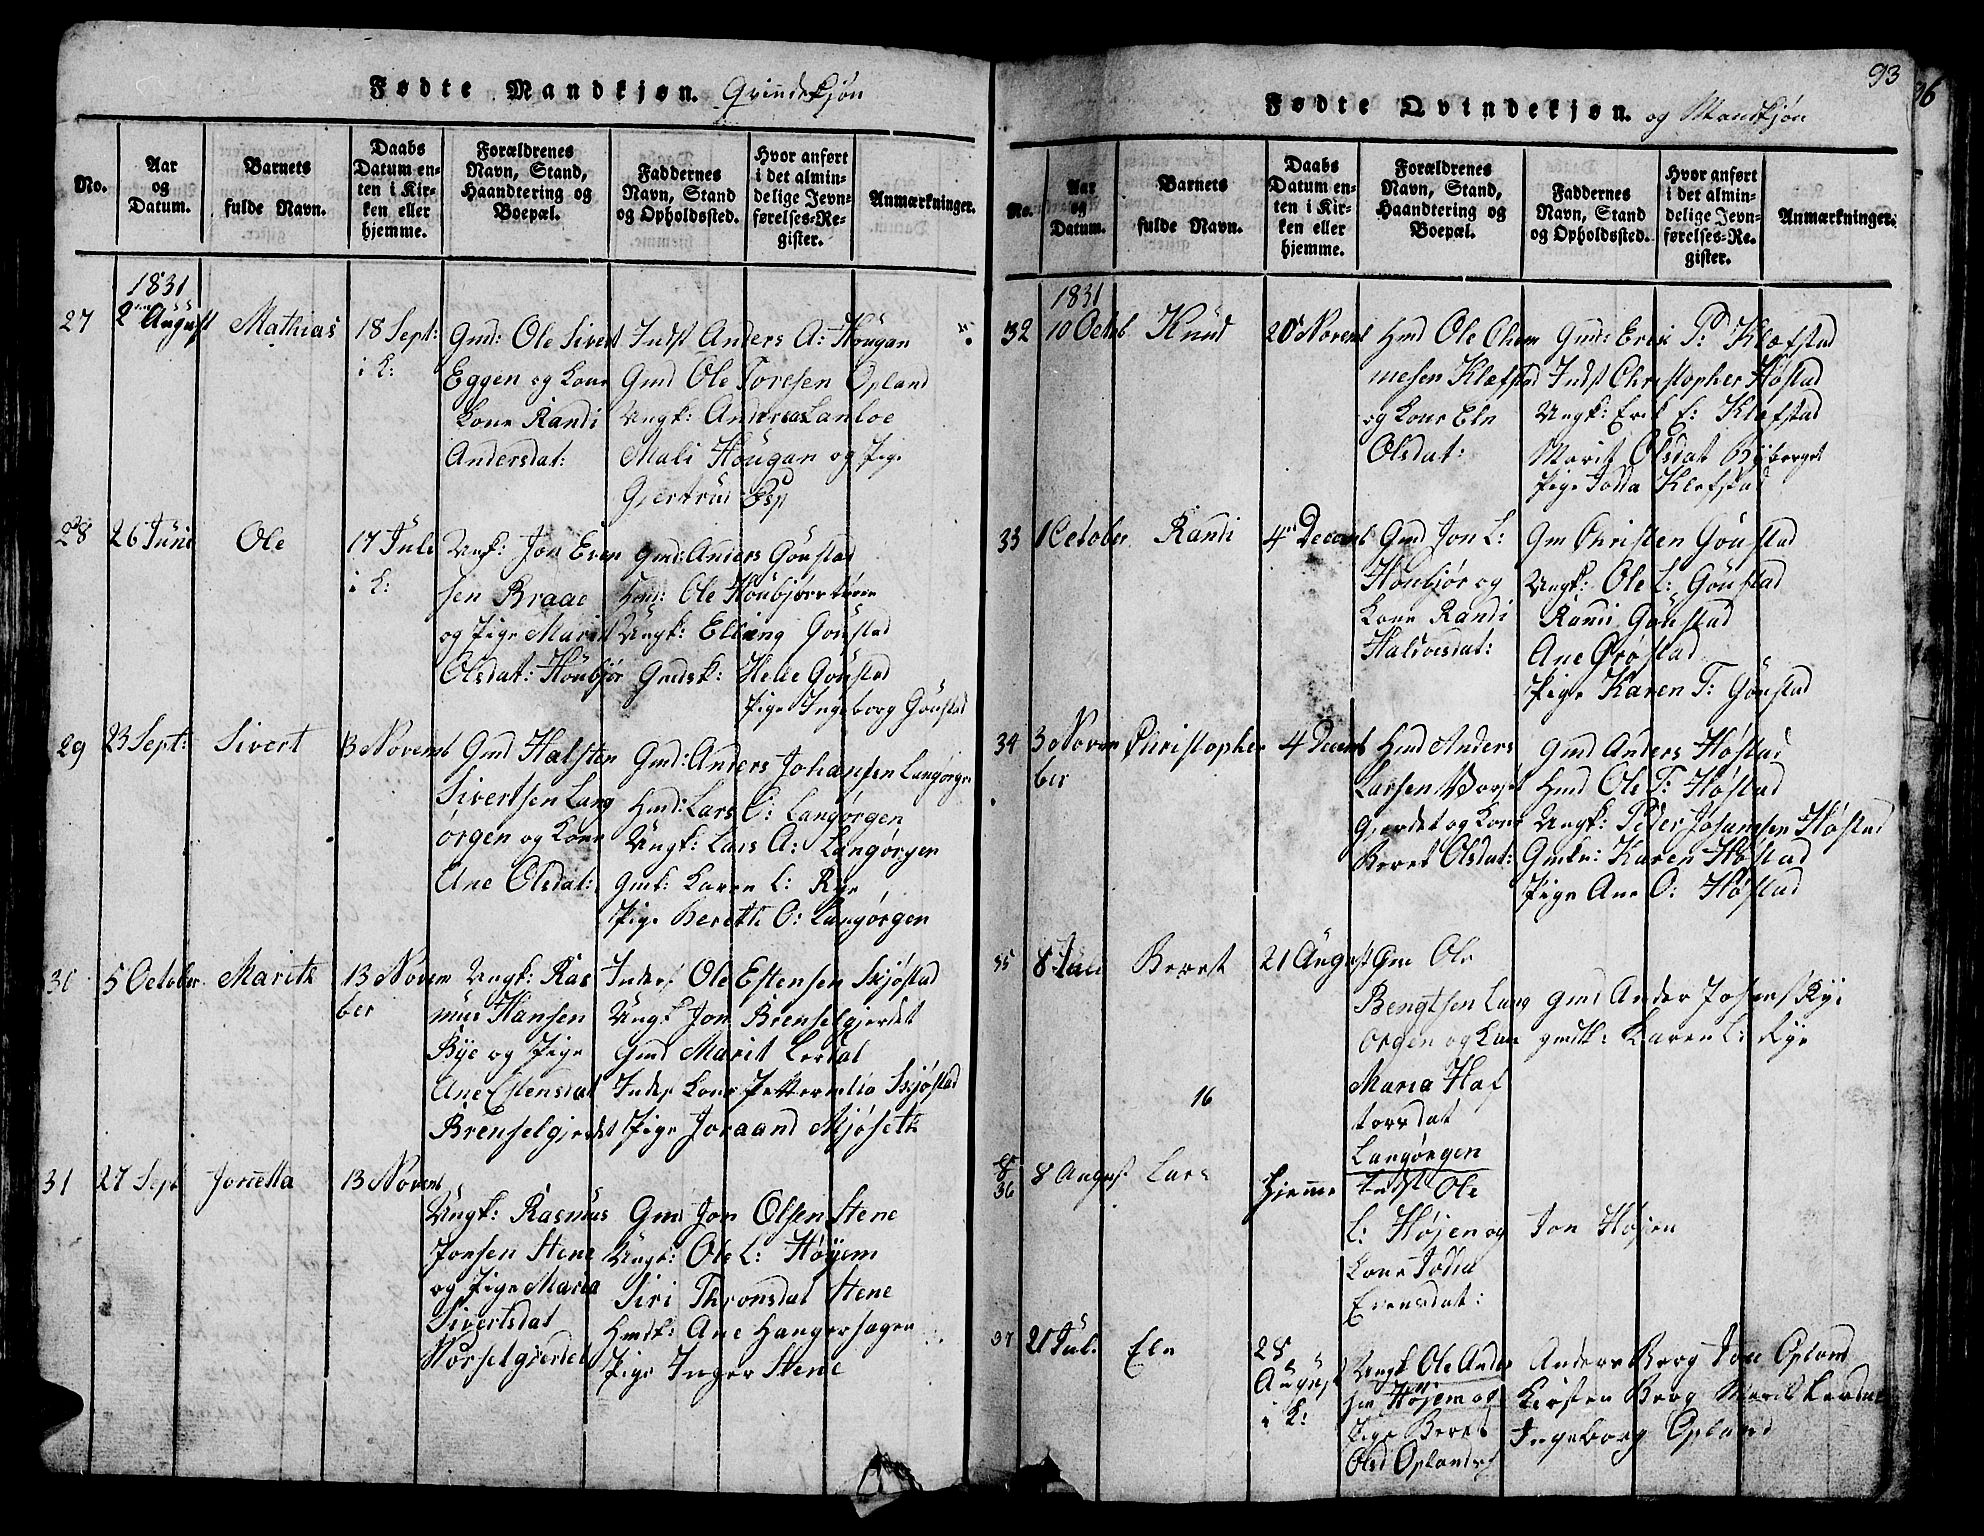 Fødte Mandkjøn. Qvindekjøn
No.
Aar og Datum.
Barnets fulde Navn.
Daabs Datum enten i Kirken eller hjemme.
Forældrenes Navn, Stand, Haandtering og Boepæl.
Faddernes Navn, Stand og Opholdssted.
Hvor anført i det almindelige Jevnførelses-Register.
Anmærkninger.
1831
27 2 August Mathias 18 Sept: i K:
Gmd: Ole Sivert
Eggen og Kone
Kone Randi
Andersdat:
Indst Anders A: Hougan
Gmd Ole Toresen Opland
Ungk: Anders Lanloe
Mali Hougan og Pige
Gjertrud Esp
28 26 Juni Ole 17 Juli i K:
Ungk: Jon Even
sen Braae
og Pige Marit
Olsdat: Houbjør
Gmd: Anders Goustad
Hmd: Ole Houbjør
Ungk: Elling Goustad
Gmdsk: Helie Goustad
Pige Ingeborg Goustad
29 23 Sept: Sivert 13 Novemb
Gmd Halsten
Sivertsen Lang
ørgen og Kone
Ane Olsdat:
Gmd: Anders Johansen Langørgen
Hmd: Lars O: Langørgen
Ungk: Lars A: Langørgen
Gmk: Karen L: Rye
Pige Bereth O: Langørgen
30 5 October Marith 13 Novem
ber
Ungk: Ras
mus Hansen
Rye og Pige
Ane Estensdat
Brenselgjerdet
Inders Ole Estensen Skjøstad
Ungk Jon Brenselgjerdet
Gmd Marit Lerdal
Inds Kone Petternelia Skjøstad
Pige Joraand Mjøseth
31 27 Sept Jonetta 13 Novemb
Ungk: Rasmus
Jonsen Stene
og Pige Maria
Sivertsdat
Vorsetgjerdet
Gmd Jon Olsen Stene
Ungk: Ole L: Høyem
Siri Thronsdat Stene
Hmdk: Ane Hangershagen
Pige Inger Stene
93
36
Fødte Qvindekjøn. og Mandkjøn
No.
Aar og Datum.
Barnets fulde Navn.
Daabs Datum enten i Kirken eller hjemme.
Forældrenes Navn, Stand, Haandtering og Boepæl.
Faddernes Navn, Stand og Opholdssted.
Hvor anført i det almindelige Jevnførelses-Register.
Anmærkninger.
1831
32 10 Octob Knud 20 Novemb
Hmd Ole Clem
mesen Klæfstad
og Kone Eln
Olsdat:
Gmd: Erik P: Klæfstad
Indst Christopher Høstad
Ungk: Erik E: Klæfstad
Marit Olsdat Byberget
Pige Jodda Klefstad
33 1 October Randi 4 Decemb
Gmd Jon L:
Houbjør og
Kone Randi
Haldorsdat:
Gm Christen Goustad
Ungk: Ole L: Goustad
Randi Goustad
Ane Grøstad
Pige Karen T: Goustad
34 3 Novem
ber
Christopher 4 Decemb
Hmd Anders
Larsen Vorset
Gjerdet og Kone
Beret Olsdat:
Gmd Anders Høstad
Hmd Ole T: Høstad
Ungk: Peder Johansen Høstad
Gmkn: Karen Høstad
Pige Ane O: Høstad
35 8 Juli Berret 21 August
Gm Ole
Bengtsen Lang
ørgen og Kone
Maria Haf
torsdat
Langørgen
Gmd Ander Johans Rye
gmdk: Karen L: Rye
16
36 8 August Lars hjemme
Indst Ole
L: Højen og
Kone Jodda
Evensdat:
Jon Højen
37 21 Juli Eln 28
August
i K:
Ungk Ole Ander
sen Højem og
Pige Beret
Olsd Oplandet
Anders Berg Jon Opland
Kirsten Berg Marit Lerdal
Ingeborg Opland